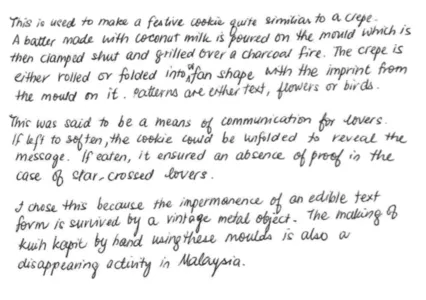 This is used to make a festive cookie quite similar to a crepe.
A batter made with coconut milk is poured on the mould which is
then clamped shut and grilled over a charcoal fire. The crepe is
either rolled or folded into a fan shape with the imprint from
the mould on it. Patterns are either text, flowers or birds.
This was said to be a means of communication for lovers.
If left to soften, the cookie could be unfolded to reveal the
message. If eaten, it ensured an absence of proof in the
case of star-crossed lovers.
I chose this because the impermanence of an edible text
form is survived by a vintage metal object. The making of
kuih kapit by hand using these moulds is also a
disappearing activity in Malaysia.